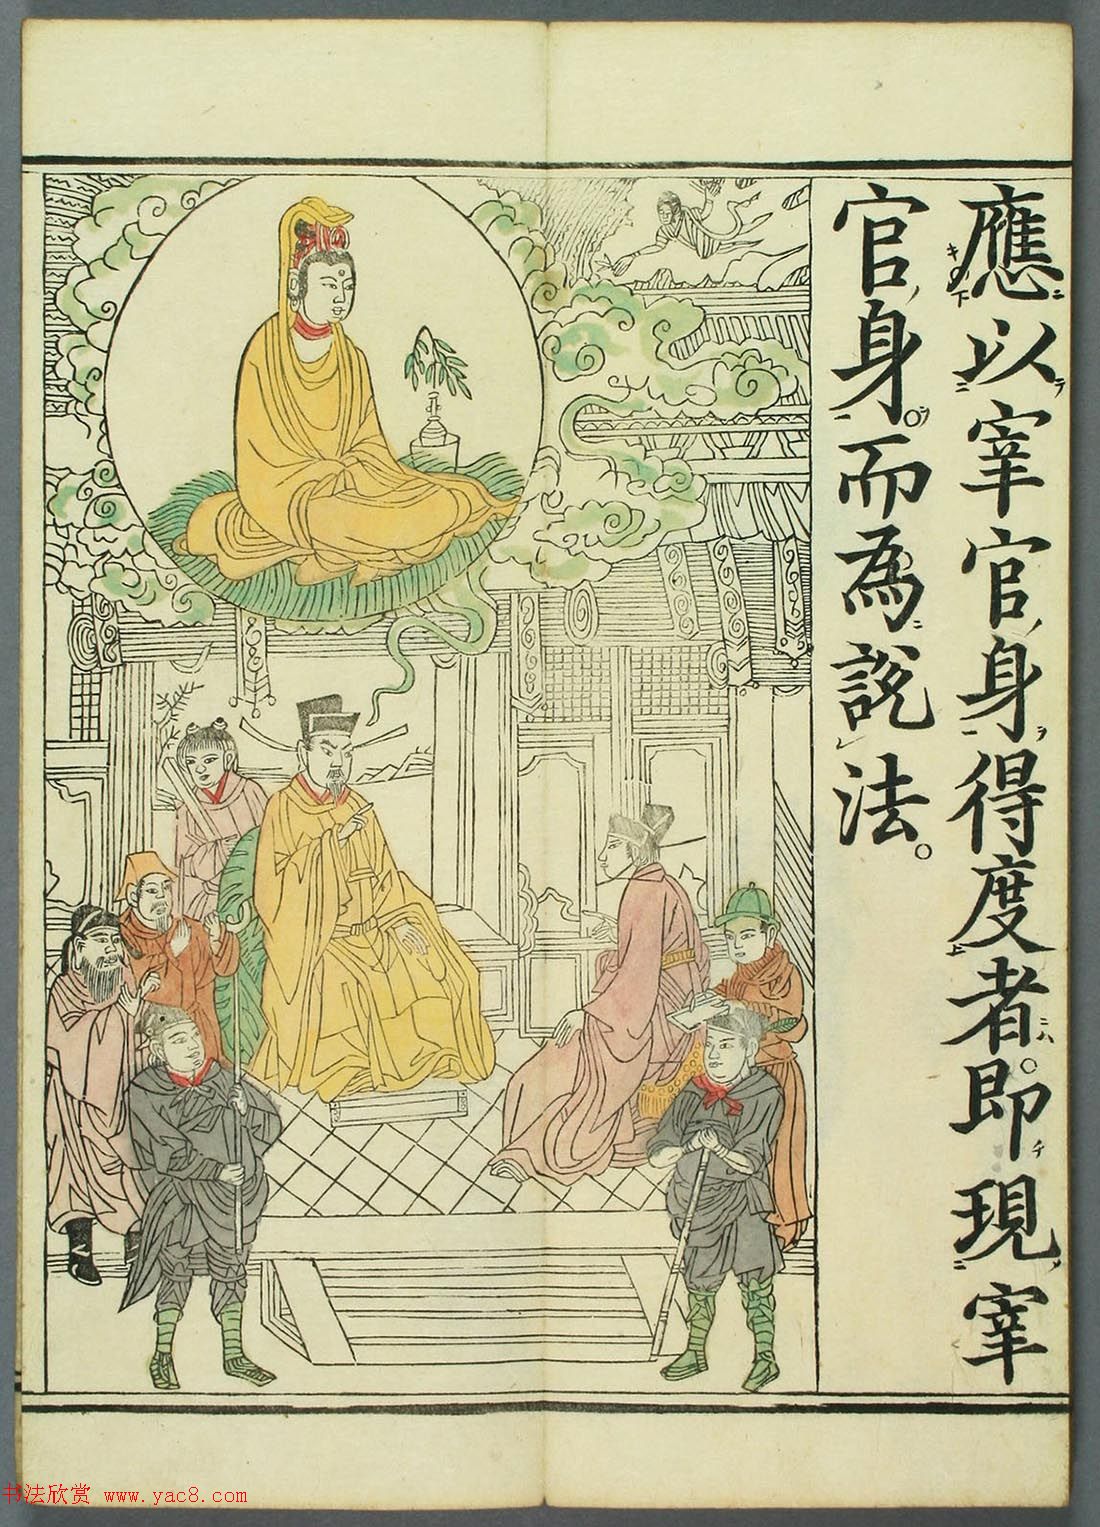 應以宰官身得度者。即現宰
官身而為說法。
书法欣赏 www.yac8.com